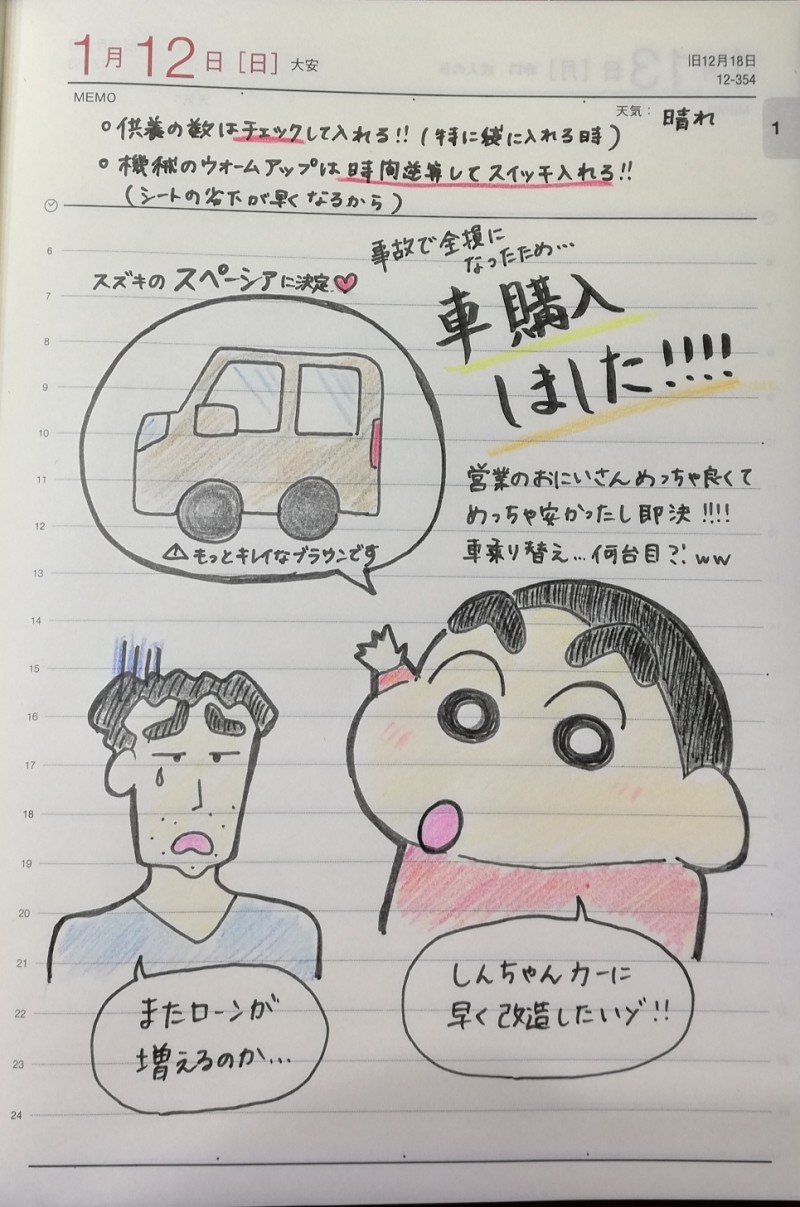 1月12日［日］ 大安
旧12月18日
12-354
MEMO
天気： 晴れ
1
○ 供養の数はチェックして入れる!!(特に袋に入れる時)
○ 機械のウォームアップは時間逆算してスイッチ入れる!!
(シートの劣下が早くなるから)
事故で全損に
なったため…
スズキのスペーシアに決定♥
車購入
しました!!!!
営業のおにいさんめっちゃ良くて
めっちゃ安かったし即決!!!!
車乗り替え…何台目?!ww
⚠もっとキレイなブラウンです
またローンが
増えるのか…
しんちゃんカーに
早く改造したいゾ!!
6
7
8
9
10
11
12
13
14
15
16
17
18
19
20
21
22
23
24